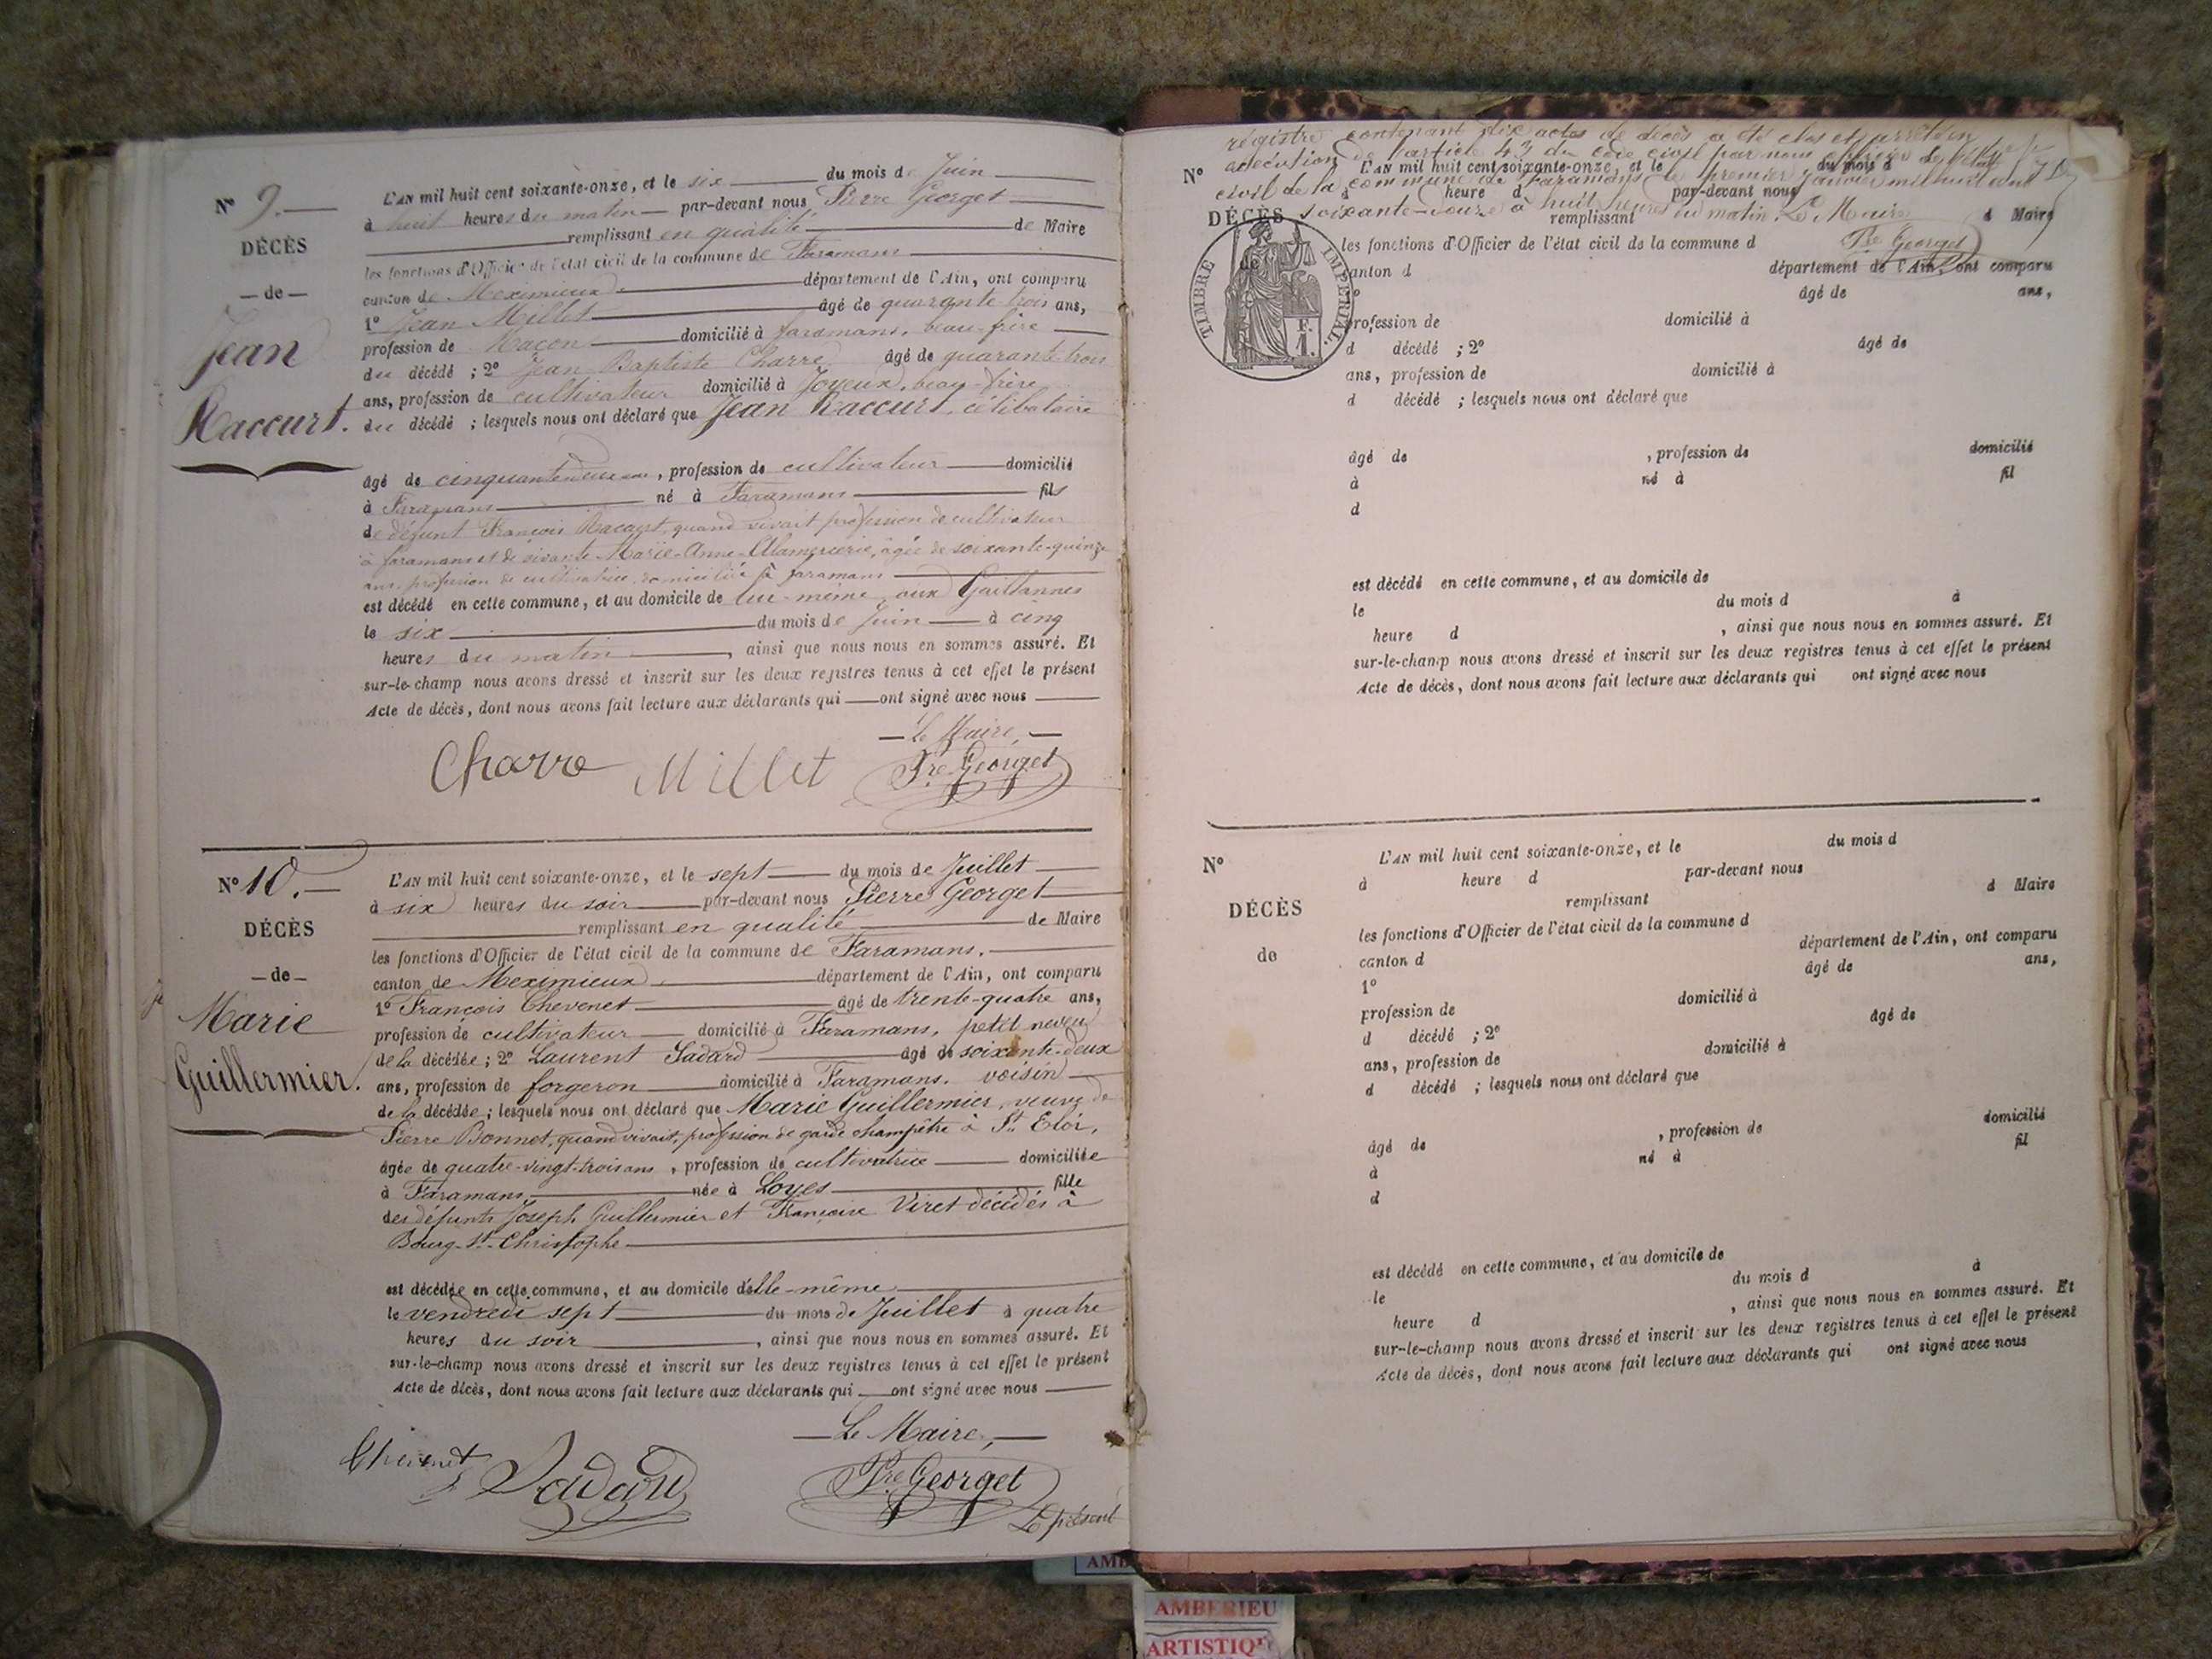 N° 9.
DÉCÈS
— de —
Jean
Raccurt.
L'AN mil huit cent soixante-onze, et le six du mois de Juin
à huit heures du matin par-devant nous Pierre Georget
remplissant en qualité de Maire
les fonctions d'Officier de l'état civil de la commune de Faramans
canton de Meximieux département de l'Ain, ont comparu
1° Jean Millet âgé de quarante-trois ans,
profession de Maçon domicilié à Faramans, beau-frère
du décédé ; 2° Jean Baptiste Charre âgé de quarante trois
ans, profession de cultivateur domicilié à Joyeux, beau-frère
du décédé ; lesquels nous ont déclaré que Jean Raccurt, célibataire
âgé de cinquante-deux ans, profession de cultivateur domicilié
à Faramans né à Faramans fils
de défunt François Raccurt, quand vivait profession de cultivateur
à faramans et de vivante Marie-Anne, âgée de soixante-quinze
ans, profession de cultivatrice, domiciliée à faramans
est décédé en cette commune, et au domicile de lui-même, aux
le six du mois de Juin à cinq
heures du matin, ainsi que nous nous en sommes assuré. Et
sur-le-champ nous avons dressé et inscrit sur les deux registres tenus à cet effet le présent
Acte de décès, dont nous avons fait lecture aux déclarants qui ont signé avec nous
Le Maire,
Charre Millet Pre Georget
N° 10.
DÉCÈS
— de —
Marie
Guillermier.
L'AN mil huit cent soixante-onze, et le sept du mois de Juillet
à six heures du soir par-devant nous Pierre Georget
remplissant en qualité de Maire
les fonctions d'Officier de l'état civil de la commune de Faramans.
canton de Meximieux département de l'Ain, ont comparu
1° François Chevenet âgé de trente-quatre ans,
profession de cultivateur domicilié à Faramans, petit neveu
de la décédée ; 2° Laurent Sadard âgé de soixante-deux
ans, profession de forgeron domicilié à Faramans. voisin
de la décédée ; lesquels nous ont déclaré que Marie Guillermier, veuve de
Pierre Bonnet, quand vivait, profession de garde champêtre à St. Eloi,
âgée de quatre-vingt-trois ans, profession de cultivatrice domiciliée
à Faramans, née à Loyes fille
des défunts Joseph Guillermier et Françoise Viret décédés à
Bourg-St-Christophe
est décédée en cette commune, et au domicile d'elle-même
le vendredi sept du mois de Juillet à quatre
heures du soir, ainsi que nous nous en sommes assuré. Et
sur-le-champ nous avons dressé et inscrit sur les deux registres tenus à cet effet le présent
Acte de décès, dont nous avons fait lecture aux déclarants qui ont signé avec nous
Le Maire,
Chevenet Sadard Pre Georget
Le présent
registre contenant dix actes de décès a été clos et arrêté en
exécution de l'article 43 du code civil par nous officier de l'état
civil de la commune de Faramans le premier janvier mil huit cent
soixante-douze à huit heures du matin. Le Maire
Pre Georget
N°
DÉCÈS
de
TIMBRE IMPERIAL.
F.
1.
L'AN mil huit cent soixante-onze, et le du mois d
à heure d par-devant nous
remplissant d Maire
les fonctions d'Officier de l'état civil de la commune d
canton d département de l'Ain, ont comparu
1° âgé de ans,
profession de domicilié à
d décédé ; 2° âgé de
ans, profession de domicilié à
d décédé ; lesquels nous ont déclaré que
âgé de , profession de domicilié
à né à fil
d
est décédé en cette commune, et au domicile de
le du mois d à
heure d , ainsi que nous nous en sommes assuré. Et
sur-le-champ nous avons dressé et inscrit sur les deux registres tenus à cet effet le présent
Acte de décès, dont nous avons fait lecture aux déclarants qui ont signé avec nous
N°
DÉCÈS
de
L'AN mil huit cent soixante-onze, et le du mois d
à heure d par-devant nous
remplissant d Maire
les fonctions d'Officier de l'état civil de la commune d
canton d département de l'Ain, ont comparu
1° âgé de ans,
profession de domicilié à
d décédé ; 2° âgé de
ans, profession de domicilié à
d décédé ; lesquels nous ont déclaré que
âgé de , profession de domicilié
à né à fil
d
est décédé en cette commune, et au domicile de
le du mois d à
heure d , ainsi que nous nous en sommes assuré. Et
sur-le-champ nous avons dressé et inscrit sur les deux registres tenus à cet effet le présent
Acte de décès, dont nous avons fait lecture aux déclarants qui ont signé avec nous
AMB
AMBERIEU
ARTISTIQU